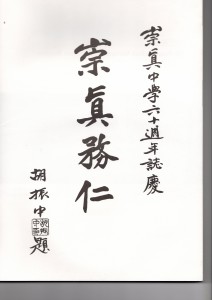 崇真中學六十週年誌慶
崇真務仁
胡振中題